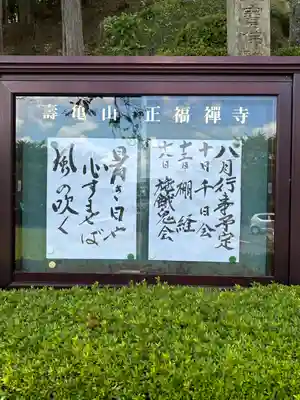 壽亀山 正福禅寺
八月行事予定
十日 千日会
十三日 棚経
十六日 施餓鬼会
暑き日や
心すませば
風の吹く